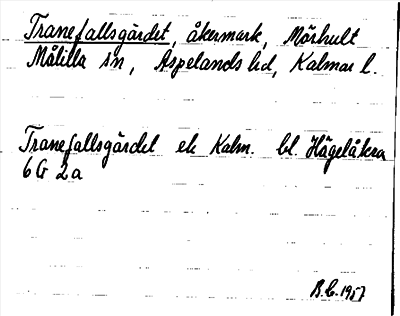 Tranefallsgärdet, åkermark, Mörhult
Målilla sn, Aspelands hd, Kalmar l.
Tranefallsgärdet ek Kalm. bl. Hägelåkra
6G 2a
B.C. 1957